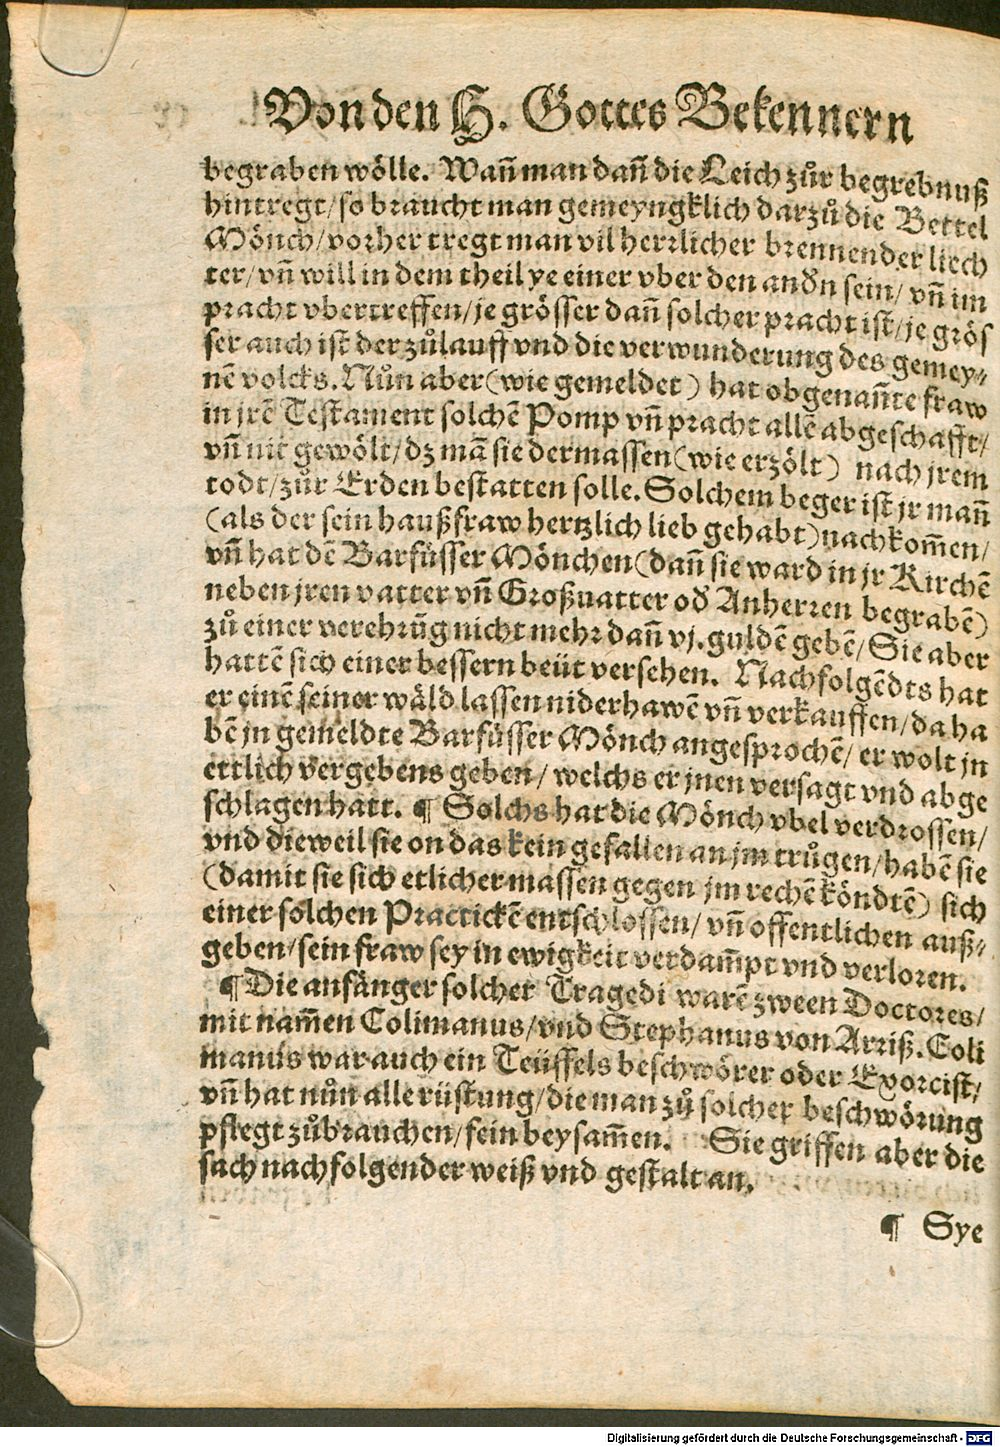 Von den H. Gottes Bekennern
begraben wölle. Wañ man dañ die Leich zůr begrebnuß
hintregt/ so braucht man gemeyngklich darzů die Bettel
Mönch/ vorher tregt man vil herrlicher brennender liech
ter/ vñ will in dem theil ye einer vber den andn̄ sein/ vñ im
pracht vbertreffen/ je grösser dañ solcher pracht ist/ je grös
ser auch ist der zůlauff vnd die verwunderung des gemey⸗
nē volcks. Nůn aber (wie gemeldet) hat obgenañte fraw
in jrē Testament solchē Pomp vñ pracht allē abgeschafft/
vñ nit gewölt/ dz mā sie dermassen (wie erzölt) nach jrem
todt/ zůr Erden bestatten solle. Solchem beger ist jr mañ
(als der sein haußfraw hertzlich lieb gehabt) nachkom̄en/
vñ hat dē Barfüsser Mönchen (dañ sie ward in jr Kirchē
neben jren vatter vñ Großuatter od̄ Anherren begrabē)
zů einer verehrūg nicht mehr dañ vj. guldē gebē/ Sie aber
hattē sich einer bessern beüt versehen. Nachfolgēdts hat
er einē seiner wäld lassen niderhawē vñ verkauffen/ da ha
bē jn gemeldte Barfüsser Mönch angesprochē/ er wolt jn
ettlich vergebens geben/ welchs er jnen versagt vnd abge
schlagen hatt. ¶ Solchs hat die Mönch vbel verdrossen/
vnd dieweil sie on das kein gefallen an jm trůgen/ habē sie
(damit sie sich etlicher massen gegen jm rechē köndtē) sich
einer solchen Practickē entschlossen/ vñ offentlichen auß⸗
geben/ sein fraw sey in ewigkeit verdam̄pt vnd verloren.
¶ Die anfänger solcher Tragedi warē zween Doctores/
mit nam̄en Colimanus/ vnd Stephanus von Arriß. Coli
manus war auch ein Teüffels beschwörer oder Exorcist/
vñ hat nůn alle rüstung/ die man zů solcher beschwörung
pflegt zůbrauchen/ fein beysam̄en. Sie griffen aber die
sach nachfolgender weiß vnd gestalt an.
¶ Sye
Digitalisierung gefördert durch die Deutsche Forschungsgemeinschaft - DFG